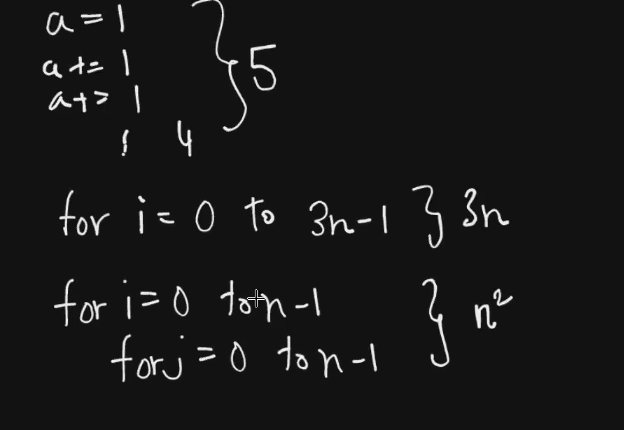 a = 1
a += 1
a += 1
⋮ 4
} 5
for i = 0 to 3n-1 } 3n
for i = 0 to n-1
for j = 0 to n-1
} n²